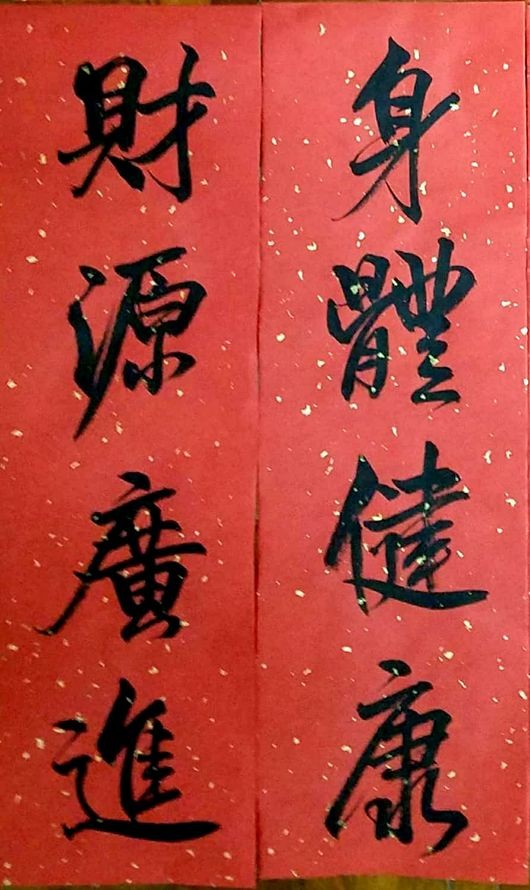 身體健康
財源廣進